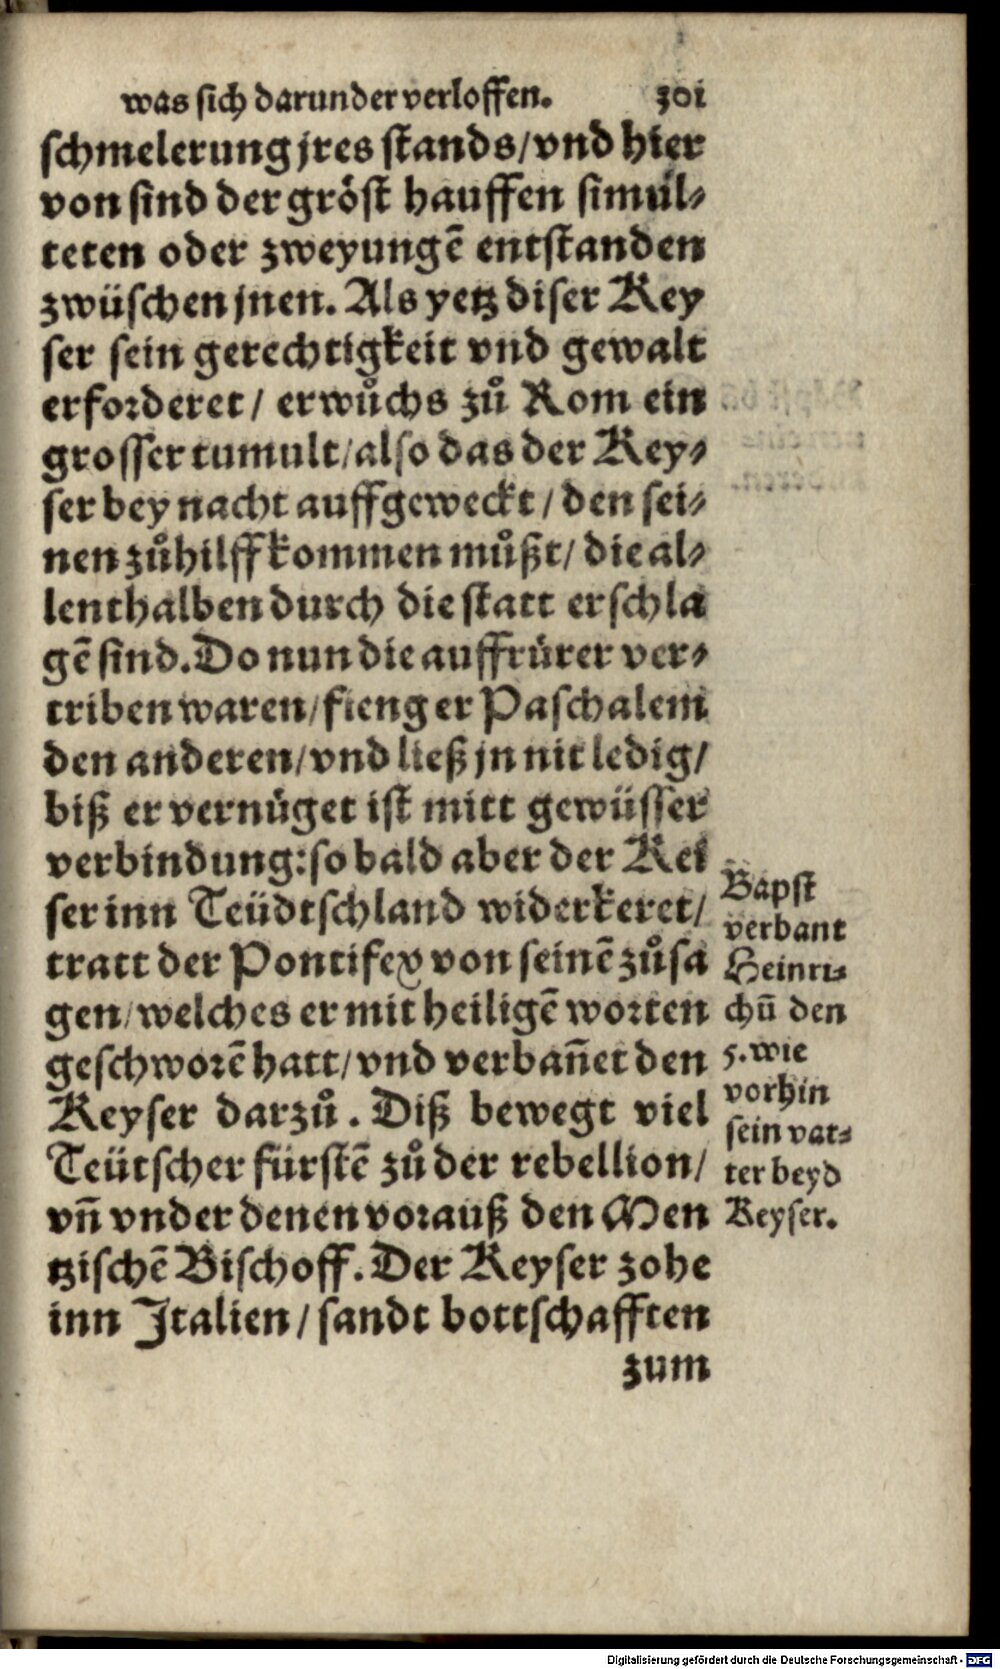 was sich darunder verloffen. 301
schmelerung jres stands/vnd hier
von sind der gröst hauffen simul⸗
teten oder zweyungē entstanden
zwüschen jnen. Als yetz diser Key
ser sein gerechtigkeit vnd gewalt
erforderet/ erwůchs zů Rom ein
grosser tumult/also das der Key⸗
ser bey nacht auffgeweckt/den sei⸗
nen zůhilff kommen můßt/die al⸗
lenthalben durch die statt erschla
gē sind. Do nun die auffrürer ver⸗
triben waren/fieng er Paschalem
den anderen/vnd ließ jn nit ledig/
biß er vernüget ist mitt gewüsser
verbindung: so bald aber der Kei
ser inn Teüdtschland widerkeret/
tratt der Pontifex von seinē zůsa
gen/welches er mit heiligē worten
geschworē hatt/vnd verbañet den
Keyser darzů. Diß bewegt viel
Teütscher fürstē zů der rebellion/
vñ vnder denen vorauß den Men
tzischē Bischoff. Der Keyser zohe
inn Italien/sandt bottschafften
zum
Bapst
verbant
Heinri⸗
chū den
5. wie
vorhin
sein vat⸗
ter beyd
Keyser.
Digitalisierung gefördert durch die Deutsche Forschungsgemeinschaft - DFG